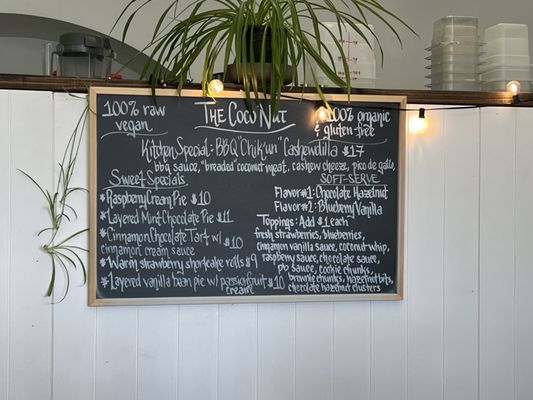 100% raw
vegan
The Coco Nut
100% organic
& gluten-free
Kitchen Special: BBQ "Chik'un" Cashewdilla $17
bbq sauce, "breaded" coconut meat, cashew cheeze, pico de gallo,
Sweet Specials
* Raspberry Cream Pie $10
* Layered Mint Chocolate Pie $11
* Cinnamon Chocolate Tart w/ $10
cinnamon cream sauce
* Warm strawberry shortcake rolls $9
* Layered vanilla bean pie w/ passionfruit $10
cream
SOFT-SERVE
Flavor #1: Chocolate Hazelnut
Flavor #2: Blueberry Vanilla
Toppings: Add $1 each
fresh strawberries, blueberries,
cinnamon vanilla sauce, coconut whip,
raspberry sauce, chocolate sauce,
pb sauce, cookie chunks,
brownie chunks, hazelnut bits
chocolate hazelnut clusters